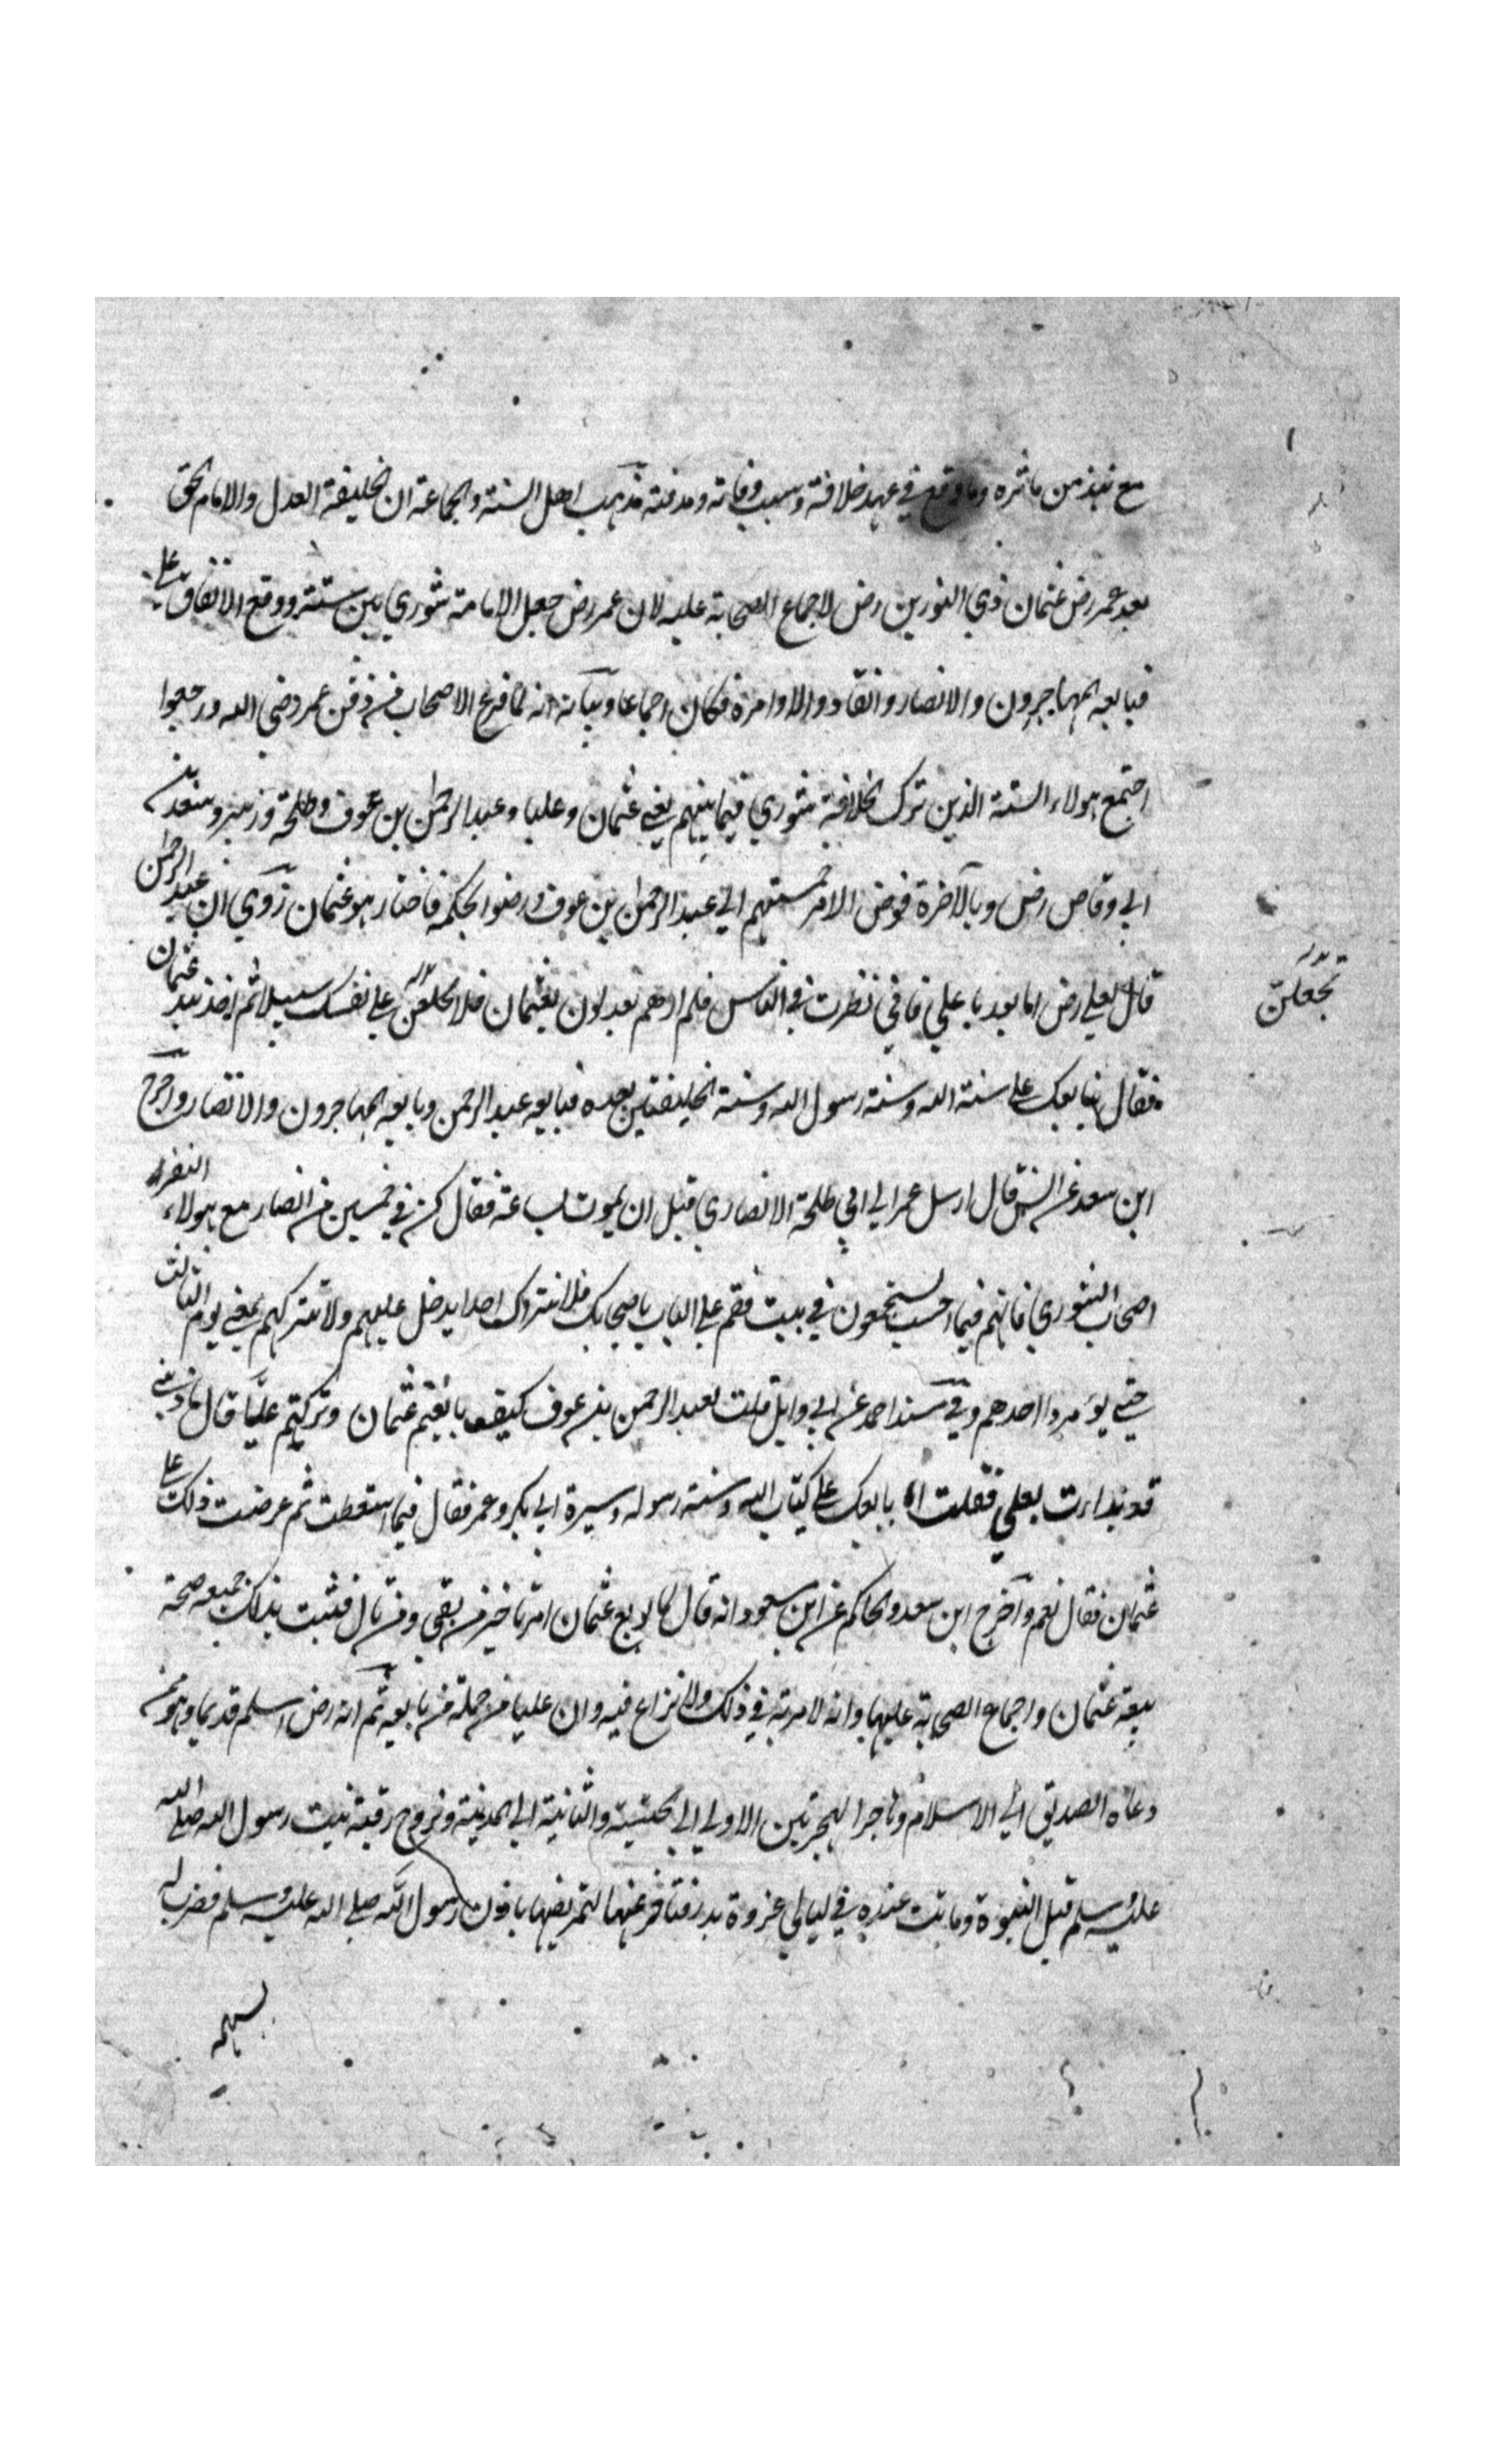 مع نبذ من ماثره وما وقع في عهد خلافته وسبب وفاته ومدفنه مذهب اهل السنة والجماعة ان الخليفة العدل والامام الحق
بعد عمر رض عثمان ذي النورين رض لاجماع الصحابة عليه لان عمر رض جعل الامامة شوري بين ستة ووقع الاتفاق علي
فبايعه المهاجرون والانصار وانقادوا لاوامره فكان اجماعا وبيانه انه لما فرغ الاصحاب من دفن عمر رضي الله ورجعوا
اجتمع هولاء الستة الذين ترك الخلافة شوري فيما بينهم يعني عثمان وعليا وعبد الرحمن بن عوف وطلحة وزبير وسعد بن
ابي وقاص رض وبالآخرة فوض الامر خمستهم الي عبد الرحمن بن عوف ورضوا بحكمه فاختار هو عثمان روي ان عبد الرحمن
قال لعلي رض اما بعد يا علي فاني نظرت في الناس فلم ارهم يعدلون بعثمان فلا تجعلن علي نفسك سبيلا ثم اخذ بيد عثمان
تجعلن
فقال نبايعك علي سنة الله وسنة رسول الله وسنة الخليفتين بعده فبايعه عبد الرحمن وبايعه المهاجرون والانصار واخرج
ابن سعد عن انس قال ارسل عمر الي ابي طلحة الانصاري قبل ان يموت بساعة فقال كن في خمسين من انصار مع هولاء النفر
اصحاب الشوري فانهم فيما احسب يجتمعون في بيت فقم علي الباب باصحابك فلا تترك احدا يدخل عليهم ولا تتركهم يمضي يوم الثالث
حتي يؤمروا احدهم وفي مسند احمد عن ابي وايل قلت لعبد الرحمن بن عوف كيف بايعتم عثمان وتركتم عليا قال ما ذنبي
قد بداءت بعلي فقلت ابايعك علي كتاب الله وسنة رسوله وسيرة ابي بكر وعمر فقال فيما استطعت ثم عرضت ذلك علي
عثمان فقال نعم وآخرج ابن سعد والحاكم عن ابن مسعود انه قال لما بويع عثمان امرنا خير من بقي ولم نال فثبت بذلك جميعه صحة
بيعة عثمان واجماع الصحابة عليها وانه لا مرية في ذلك ولا نزاع فيه وان عليا من جملة من بايعه ثم انه رض اسلم قديما وهو ممن
دعاه الصديق الي الاسلام وهاجر الهجرتين الاولي الي الحبشة والثانية الي المدينة وتزوج رقية بنت رسول الله صلي الله
عليه وسلم قبل النبوة وماتت عنده في ليالي غزوة بدر فتاخر عنها لتمريضها باذن رسول الله صلي الله عليه وسلم فضرب له
بسهمه